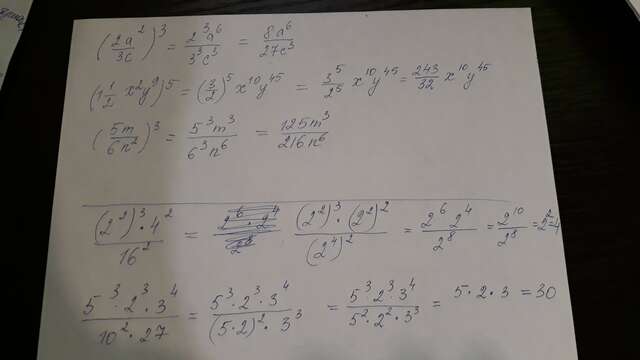 (2a²/3c)³ = 2³a⁶/3³c³ = 8a⁶/27c³
(1 1/2 x²y⁹)⁵ = (3/2)⁵ x¹⁰y⁴⁵ = 3⁵/2⁵ x¹⁰y⁴⁵ = 243/32 x¹⁰y⁴⁵
(5m/6n²)³ = 5³m³/6³n⁶ = 125m³/216n⁶
(2²)³·4²/16² = (2²)³·(2²)²/(2⁴)² = 2⁶2⁴/2⁸ = 2¹⁰/2⁸ = 2² = 4
5³·2³·3⁴/10²·27 = 5³·2³·3⁴/(5·2)²·3³ = 5³·2³·3⁴/5²·2²·3³ = 5·2·3 = 30